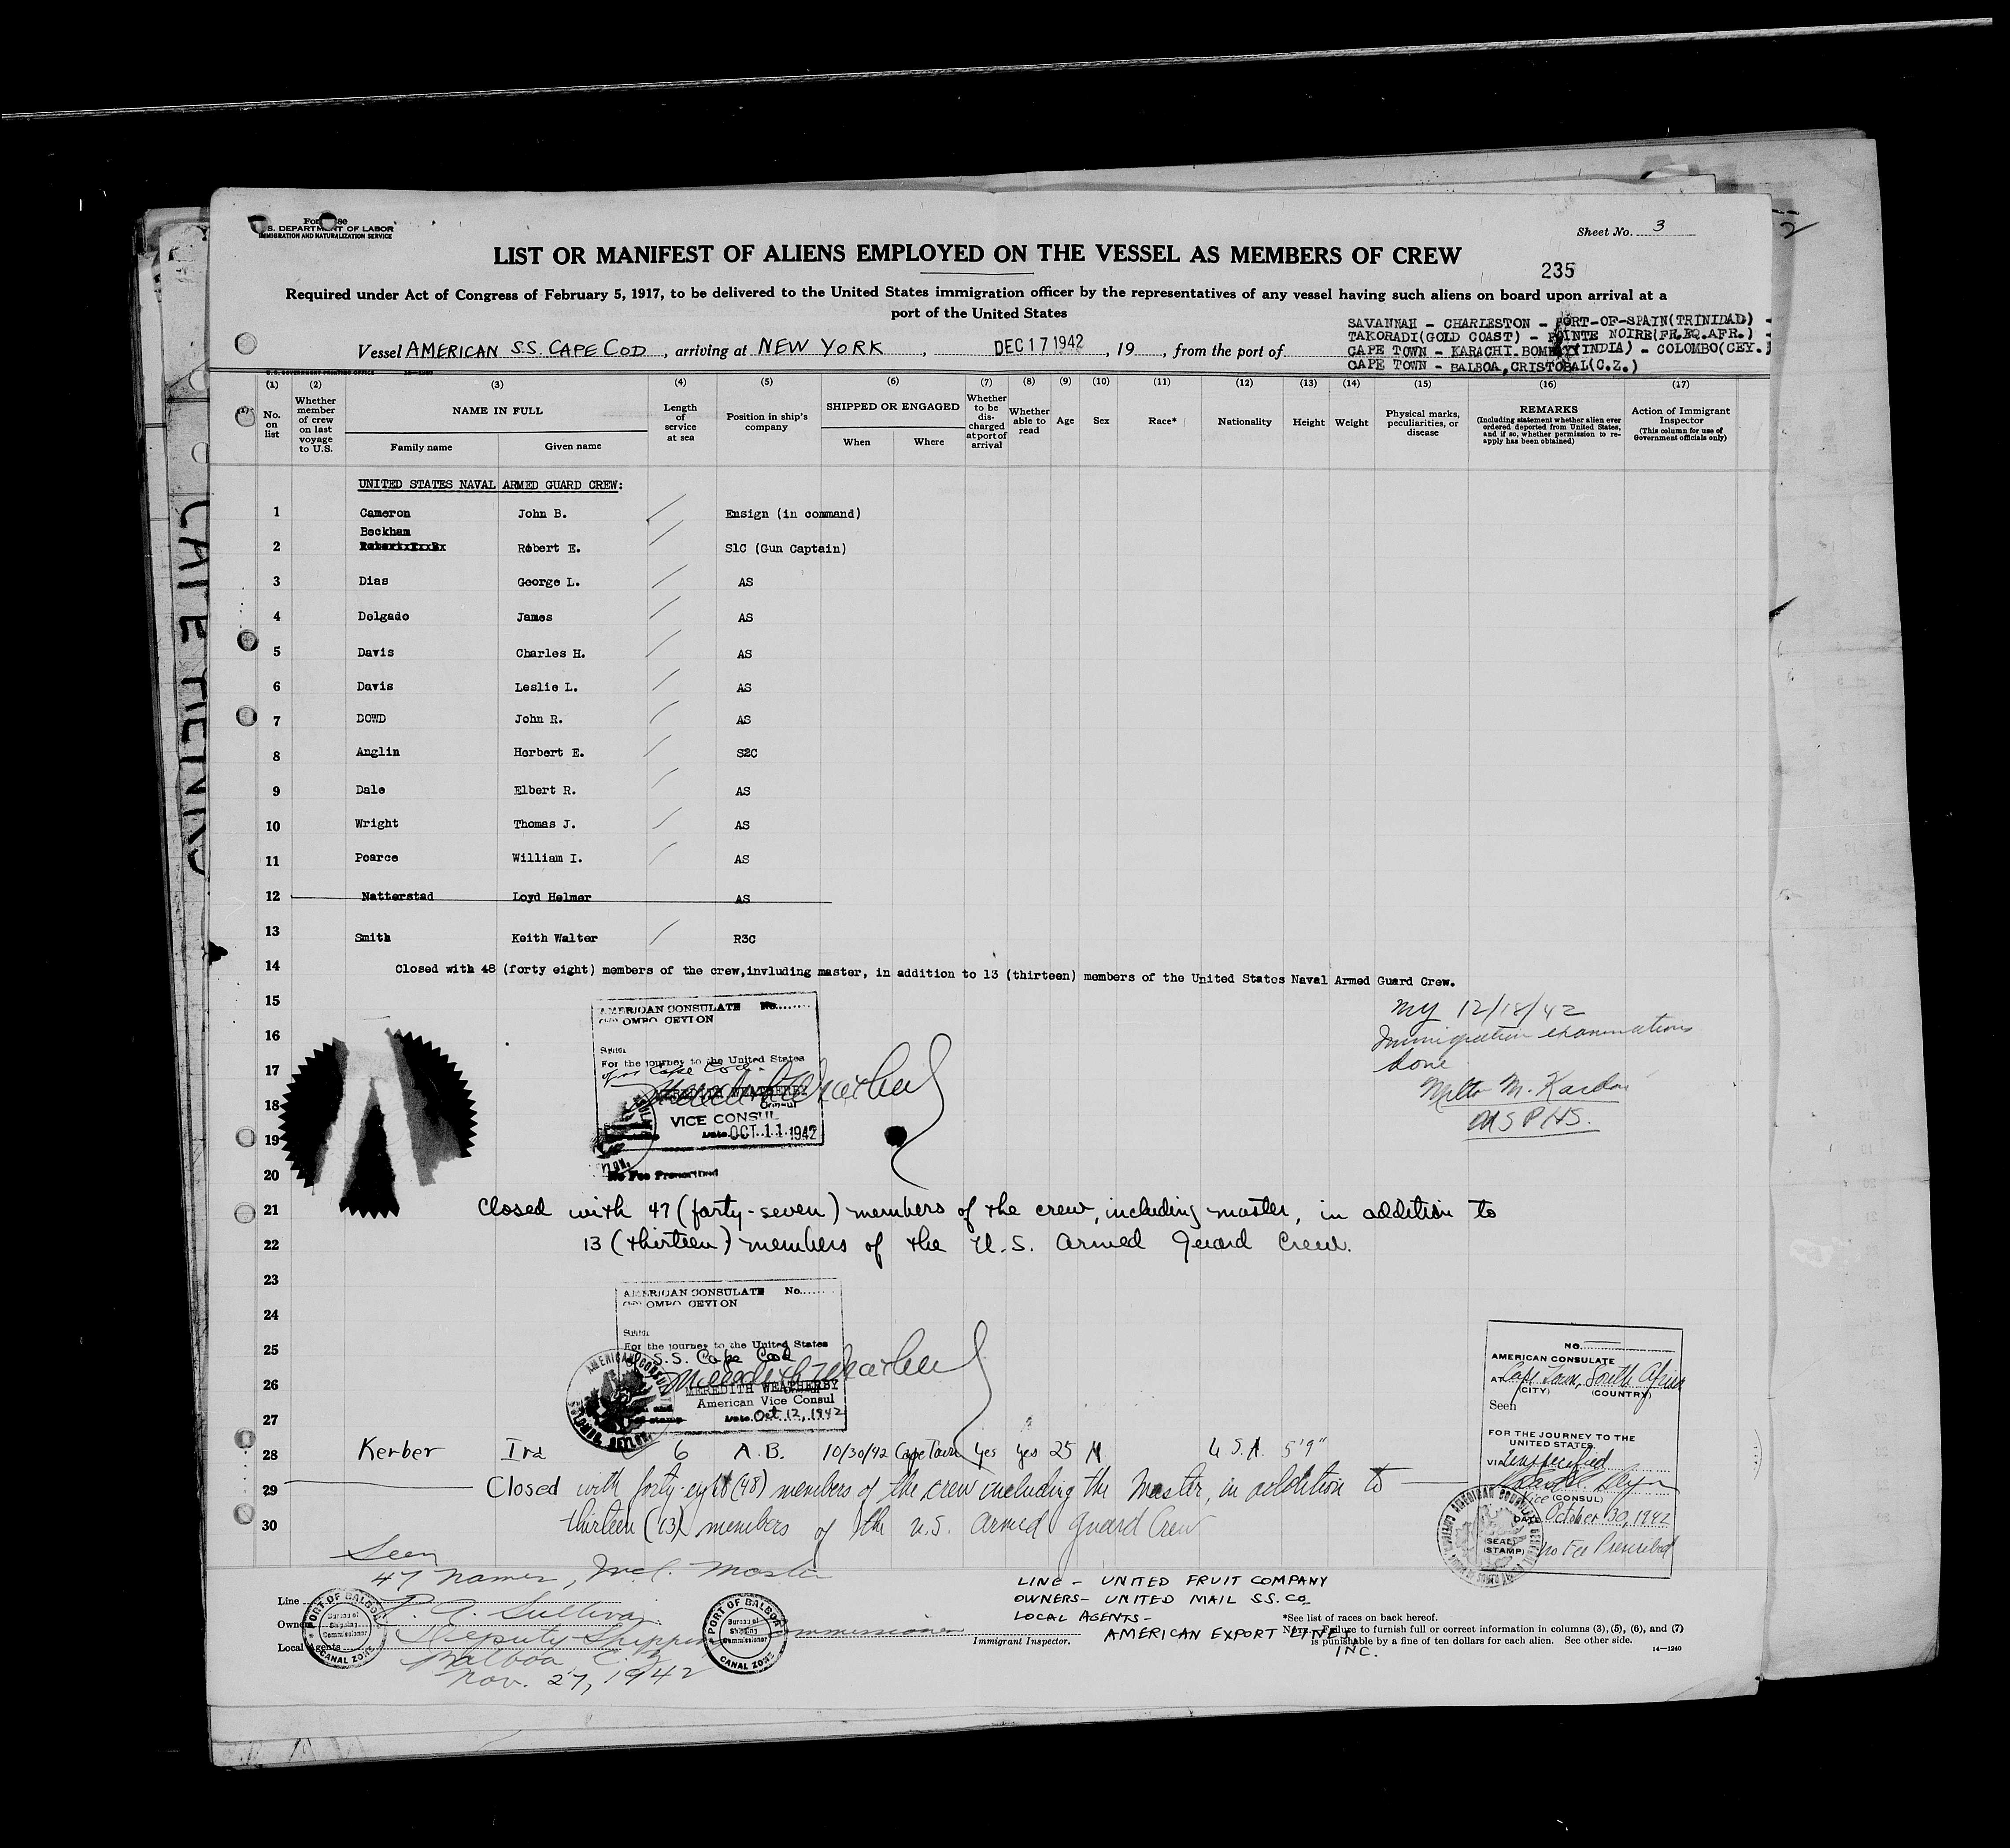 Sheet No. 3
S. DEPARTMENT OF LABOR
IMMIGRATION AND NATURALIZATION SERVICE
LIST OR MANIFEST OF ALIENS EMPLOYED ON THE VESSEL AS MEMBERS OF CREW
235
Required under Act of Congress of February 5, 1917, to be delivered to the United States immigration officer by the representatives of any vessel having such aliens on board upon arrival at a
port of the United States
SAVANNAH - CHARLESTON - PORT-OF-SPAIN(TRINIDAD) -
TAKORADI(GOLD COAST) - POINTE NOIRE(FR.EQ.AFR.) -
Vessel AMERICAN S.S. CAPE COD, arriving at NEW YORK, DEC 17 1942, 19, from the port of CAPE TOWN - KARACHI.BOMBAY(INDIA) - COLOMBO(CEY.)
CAPE TOWN - BALBOA,CRISTOBAL(C.Z.)
U.S. GOVERNMENT PRINTING OFFICE
(1) (2) (3) (4) (5) (6) (7) (8) (9) (10) (11) (12) (13) (14) (15) (16) (17)
No. on list
Whether member of crew on last voyage to U.S.
NAME IN FULL
Family name Given name
Length of service at sea
Position in ship's company
SHIPPED OR ENGAGED
When Where
Whether to be discharged at port of arrival
Whether able to read
Age
Sex
Race*
Nationality
Height
Weight
Physical marks, peculiarities, or disease
REMARKS
(Including statement whether alien ever ordered deported from United States, and if so, whether permission to reapply has been obtained)
Action of Immigrant Inspector
(This column for use of Government officials only)
UNITED STATES NAVAL ARMED GUARD CREW:
1 Cameron John B. Ensign (in command)
Beckham
2 Robert E. S1C (Gun Captain)
3 Dias George L. AS
4 Delgado James AS
5 Davis Charles H. AS
6 Davis Leslie L. AS
7 DOWD John R. AS
8 Anglin Herbert E. S2C
9 Dale Elbert R. AS
10 Wright Thomas J. AS
11 Pearce William I. AS
12 Natterstad Loyd Helmer AS
13 Smith Keith Walter R3C
14 Closed with 48 (forty eight) members of the crew,invluding master, in addition to 13 (thirteen) members of the United States Naval Armed Guard Crew.
15
16
17
18
19
20
AMERICAN CONSULATE No.
COLOMBO CEYLON
For the journey to the United States
Cape Cod
MEREDITH WEATHERBY
VICE CONSUL
Date OCT 11 1942
No Fee Prescribed
NY 12/18/42
Immigration examinations
done
Milto M. Kardon
USPHS.
21 Closed with 47 (forty-seven) members of the crew, including master, in addition to
22 13 (thirteen) members of the U.S. Armed Guard Crew.
23
24
25
26
27
AMERICAN CONSULATE No.
COLOMBO CEYLON
For the journey to the United States
S.S. Cape Cod
MEREDITH WEATHERBY
American Vice Consul
Date Oct 12, 1942
28 Kerber Ira 6 A.B. 10/30/42 Cape Town Yes Yes 25 M U.S.A. 5'9"
29 Closed with forty-eight (48) members of the crew including the Master, in addition to
30 thirteen (13) members of the U.S. Armed Guard Crew
NO.
AMERICAN CONSULATE
AT Cape Town, South Africa
(CITY) (COUNTRY)
Seen
FOR THE JOURNEY TO THE
UNITED STATES
VIA Unspecified
Vice (CONSUL)
DATE October 30, 1942
(SEAL)
(STAMP)
No Fee Prescribed
Seen
47 names, Incl. Master
P. A. Sullivan
Deputy Shipping Commissioner
Balboa, C.Z.
Nov. 27, 1942
Line
Owners
Local Agents
PORT OF BALBOA
Bureau of Shipping Commissioner
CANAL ZONE
PORT OF BALBOA
Bureau of Shipping Commissioner
CANAL ZONE
Immigrant Inspector.
LINE - UNITED FRUIT COMPANY
OWNERS- UNITED MAIL S.S. CO.
LOCAL AGENTS-
AMERICAN EXPORT LINES,
INC.
*See list of races on back hereof.
NOTE.—Failure to furnish full or correct information in columns (3), (5), (6), and (7)
is punishable by a fine of ten dollars for each alien. See other side.
14—1240